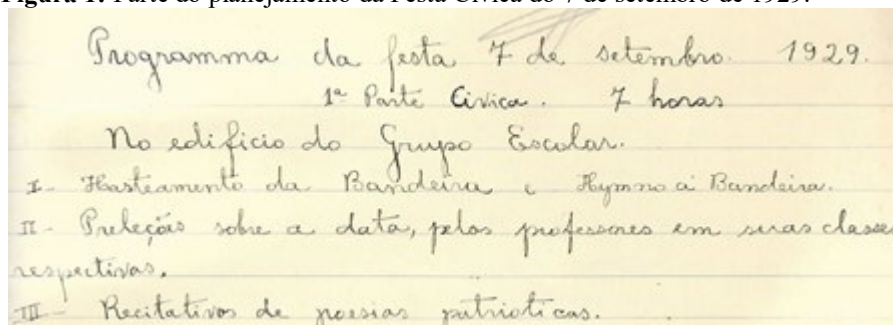 Figura 1: Parte do planejamento da Festa Cívica do 7 de setembro de 1929.
Programma da festa 7 de setembro. 1929.
1ª Parte Civica. 7 horas
No edificio do Grupo Escolar.
I - Hasteamento da Bandeira e Hymno á Bandeira.
II - Preleções sobre a data, pelos professores em suas classes
respectivas.
III - Recitativos de poesias patrioticas.